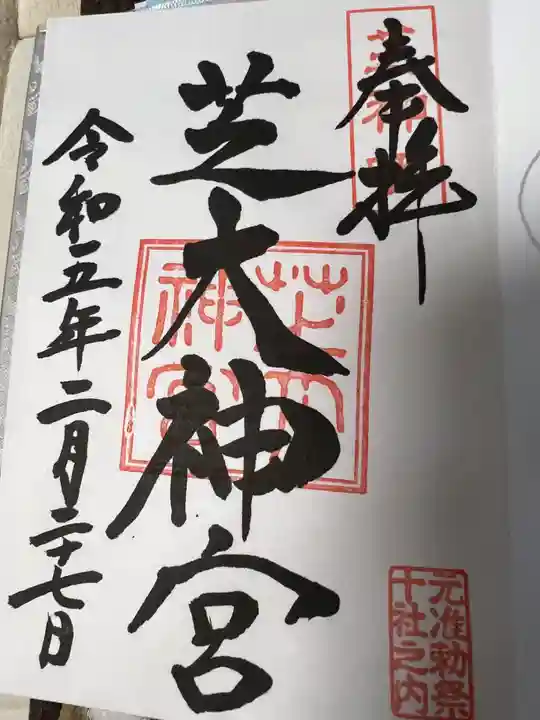 奉拝
芝大神宮
芝大神宮
令和五年二月二十七日
元准勅祭
十社之内